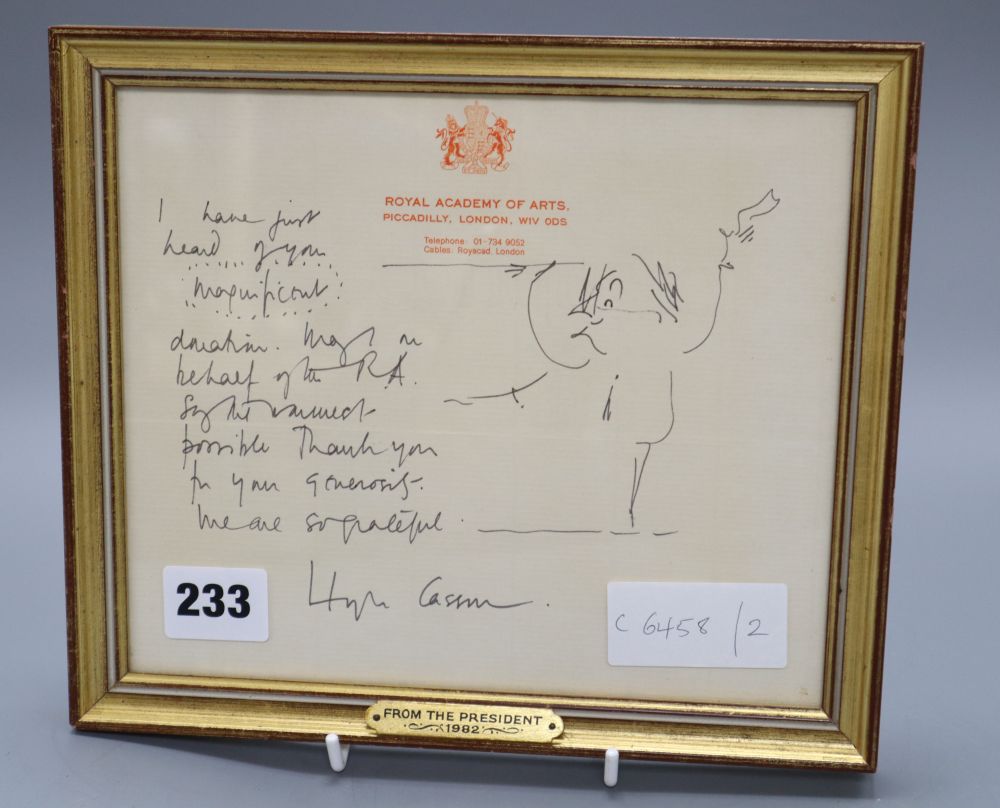 ROYAL ACADEMY OF ARTS,
PICCADILLY, LONDON, W1V 0DS
Telephone: 01-734 9052
Cables: Royacad, London
I have just
heard of your
magnificent
donation. May I on
behalf of the R.A.
say the warmest
possible Thank you
for your generosity.
We are so grateful.
Hugh Casson.
233
C 6458 /2
FROM THE PRESIDENT
1982